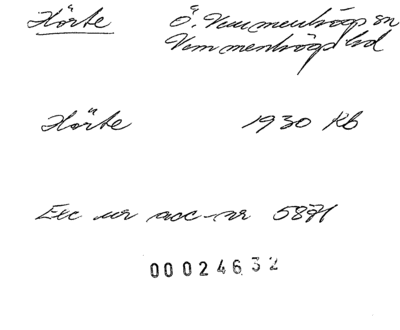 Hörte Ö. Vemmenhögs sn
Vemmenhögs hd
Hörte 1930 Kb
Exc ur acc-nr 5871
00024632